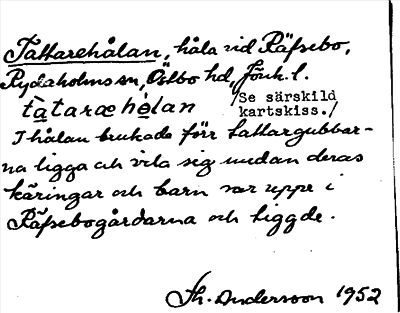 Tattarehålan, håla vid Räfsebo,
Rydaholms sn, Östbo hd, Jönk. l.
tàtaræhólan /Se särskild
kartskiss./
I hålan brukade förr tattargubbar-
na ligga och vila sig medan deras
käringar och barn var uppe i
Räfsebogårdarna och tiggde.
Th. Andersson 1952